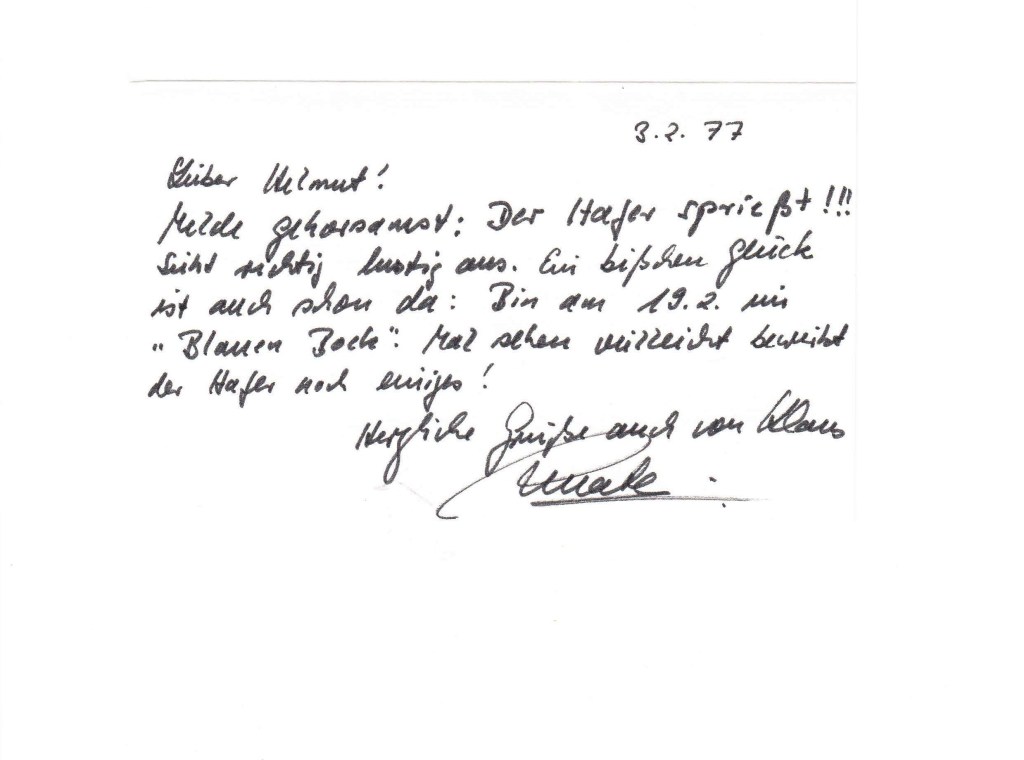 3.2.77
Lieber Helmut!
Melde gehorsamst: Der Hafer sprießt!!!
Sieht richtig lustig aus. Ein bißchen Glück
ist auch schon da: Bin am 19.2. im
"Blauen Bock". Mal sehen vielleicht bewirkt
der Hafer noch einiges!
Herzliche Grüße auch von Klaus